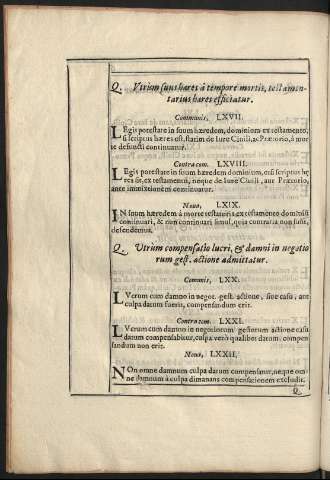 Q. Vtrum suus hæres à tempore mortis, testamen-
tarius hæres efficiatur.
Communis, LXVII.
LEgis potestate in suum hæredem, dominium ex testamento,
si scriptus hæres est, statim de Iure Ciuili, ac Prætorio, à mor
te defuncti continuatur.
Contra com. LXVIII.
LEgis potestate in suum hæredem dominium, etsi scriptus hę
res sit, ex testamento, neque de Iure Ciuili, aut Prætorio,
ante immixtionem continuatur.
Noua, LXIX.
IN suum hæredem à morte testatoris ex testamento dominiū
continuari, & non continuari simul, quia contraria non sunt,
defendemus.
Q. Vtrum compensatio lucri, & damni in negotio
rum gest. actione admittatur.
Communis, LXX.
LVcrum cum damno in negot. gest. actione, siue casu, aut
culpa datum fuerit, compensandum erit.
Contra com. LXXI.
LVcrum cum damno in negotiorum gestorum actione casu
datum compensabitur, culpa verò qualibet datum compen
sandum non erit.
Noua, LXXII.
NOn omne damnum culpa datum compensatur, neque om
ne damnum à culpa dimanans compensationem excludit.
Q.